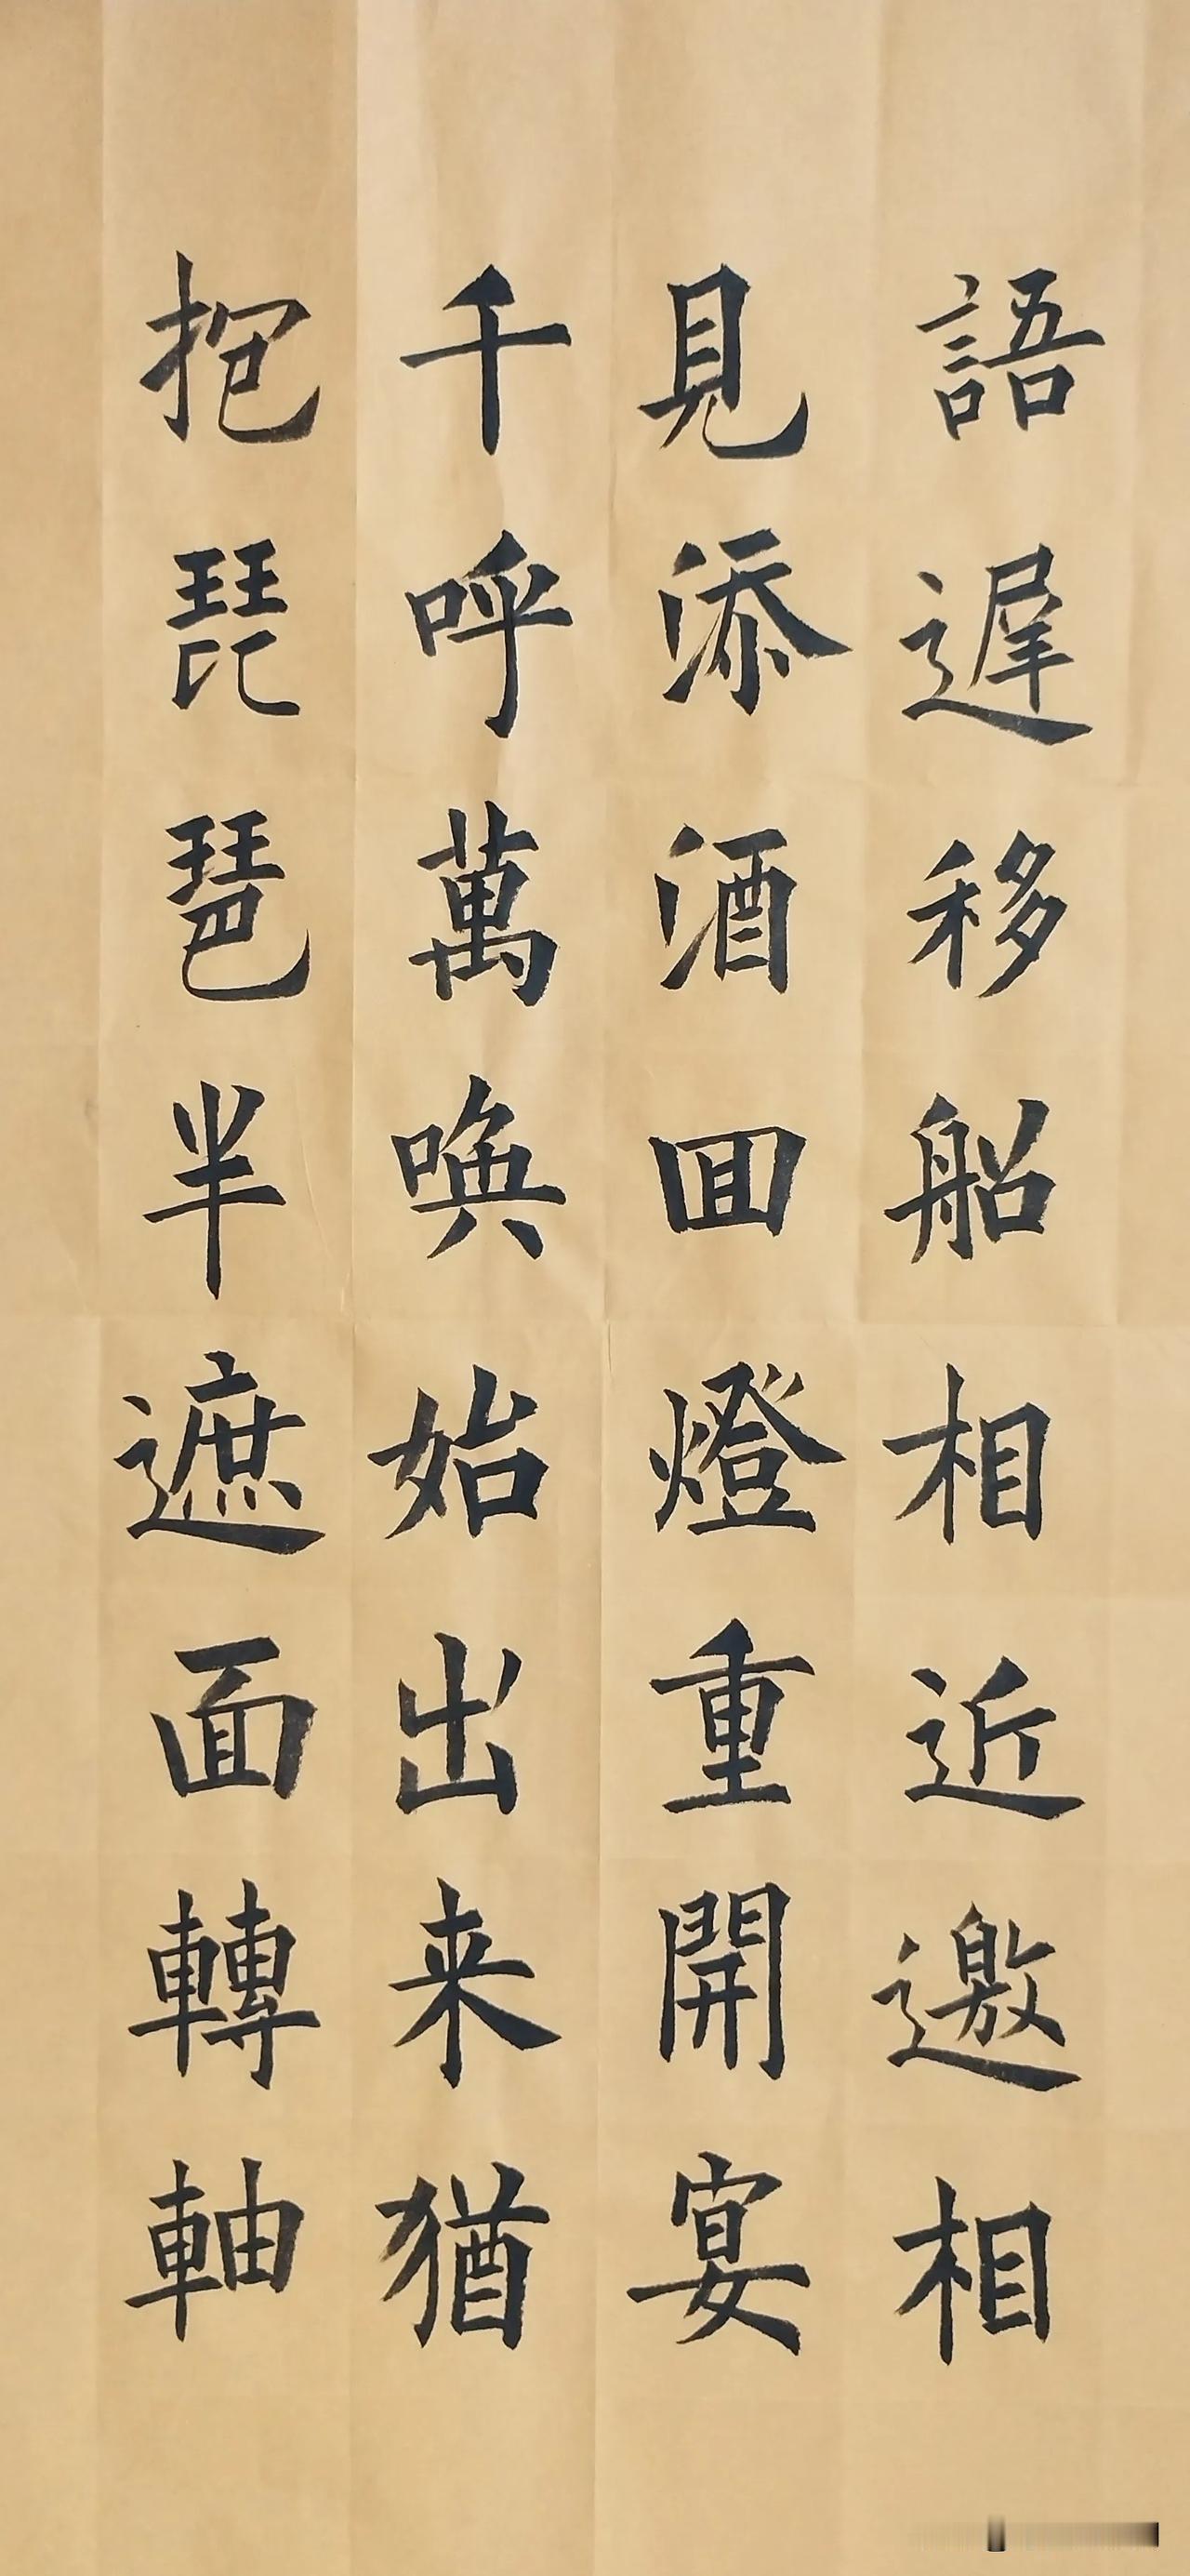 語遲移船相近邀相
見添酒回燈重開宴
千呼萬喚始出来猶
抱琵琶半遮面轉軸